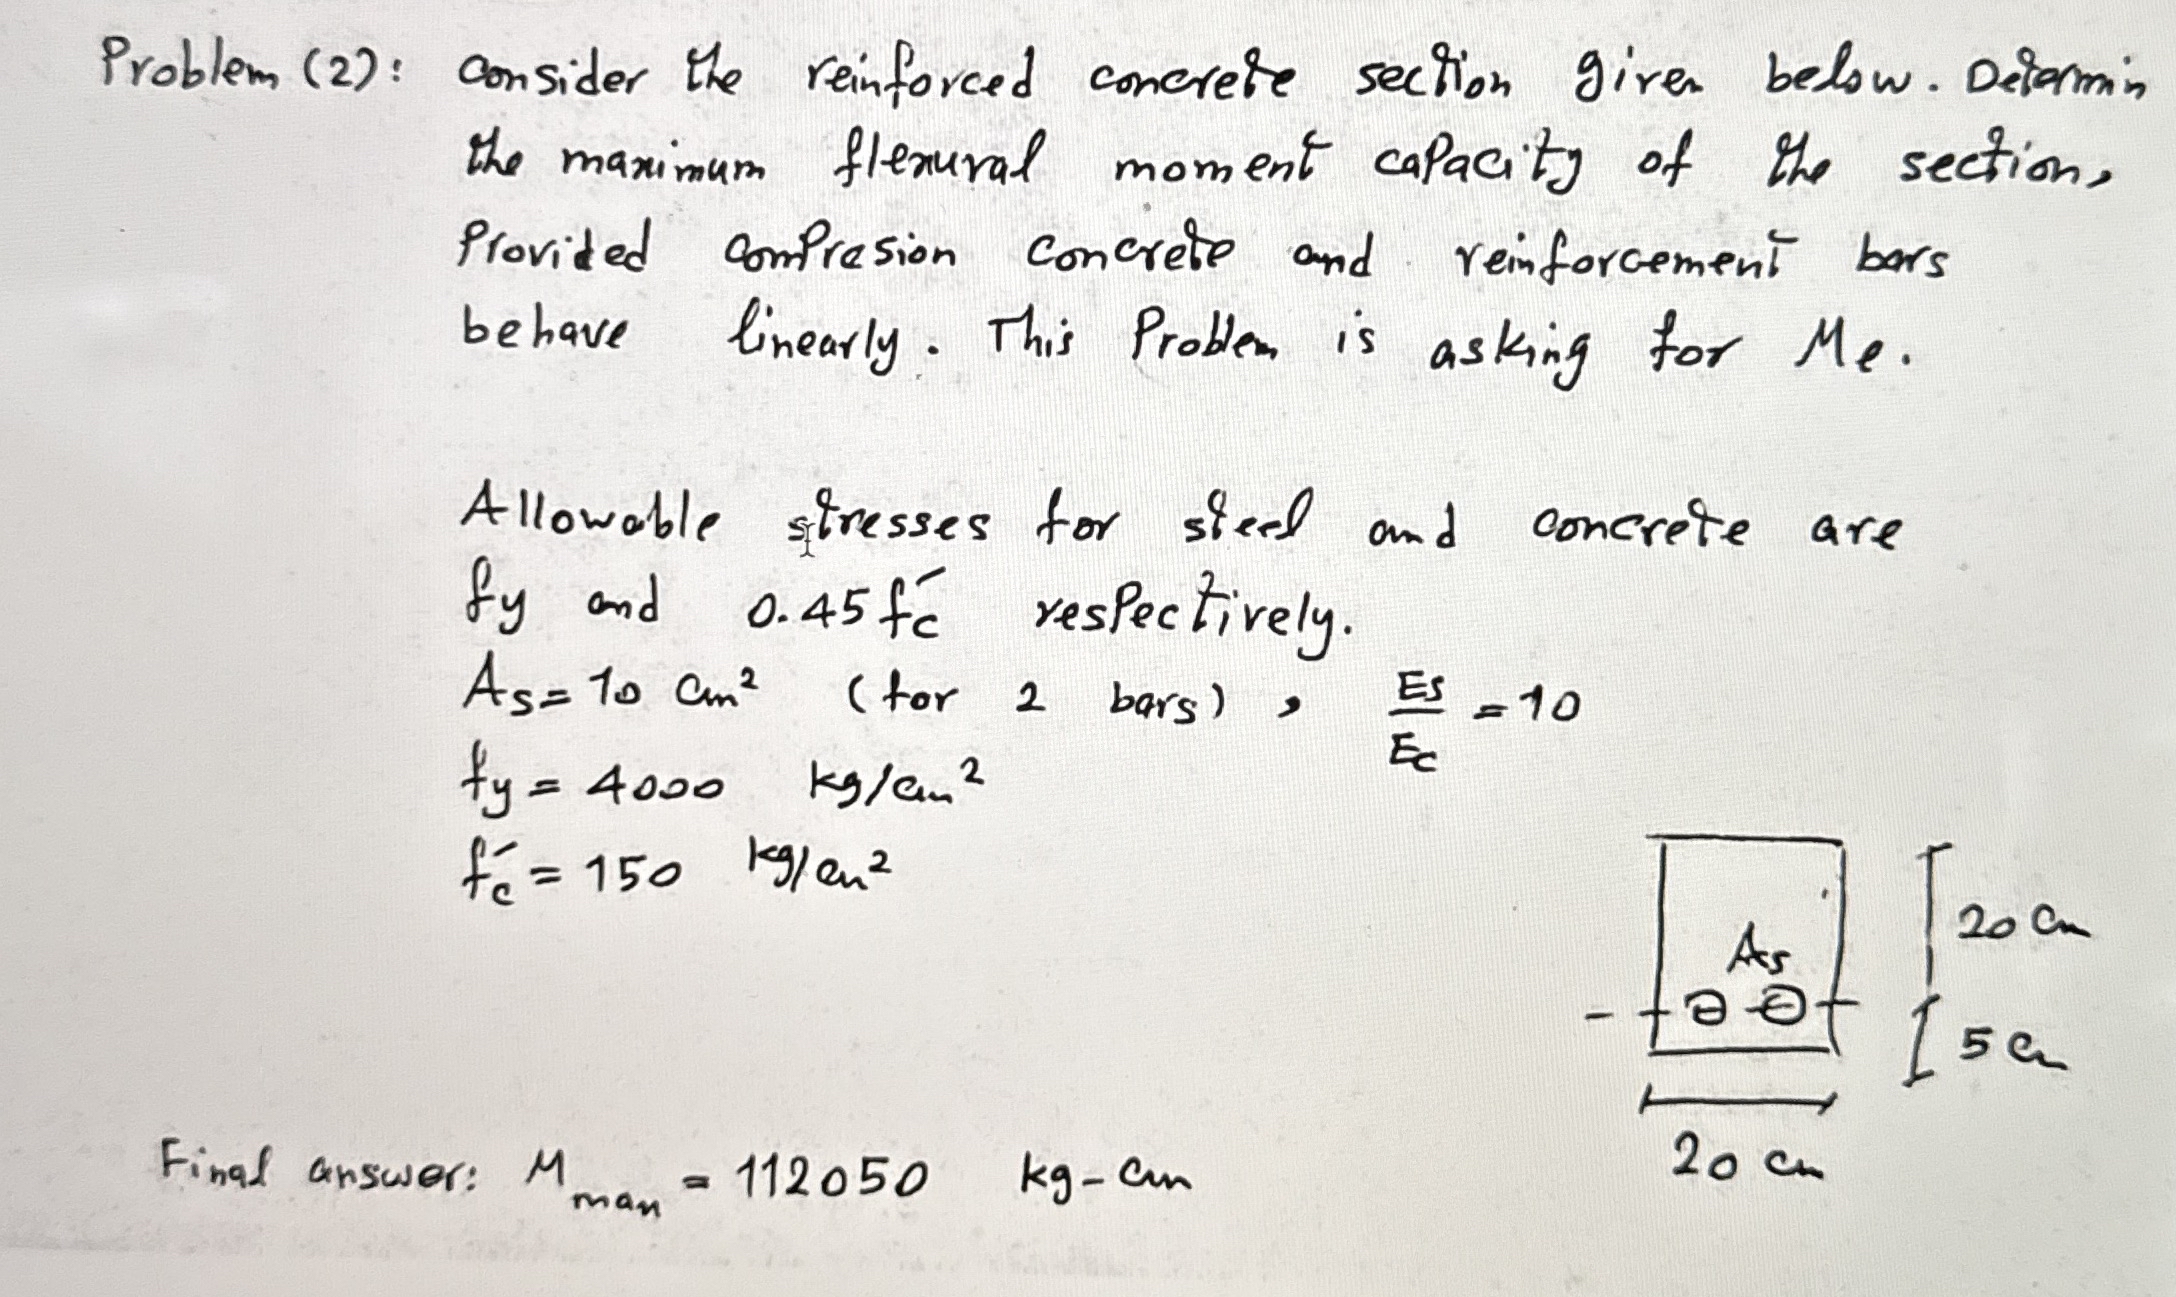 Problem (2): Consider the reinforced concrete section given below. Determin
the maximum flexural moment capacity of the section,
Provided compresion concrete and reinforcement bars
behave linearly. This Problem is asking for Me.
Allowable stresses for steel and concrete are
fy and 0.45 f́c respectively.
As = 10 cm² (for 2 bars), Es/Ec = 10
fy = 4000 kg/cm²
f́c = 150 kg/cm²
20 cm
As
5 cm
20 cm
Final answer: Mmax = 112050 kg-cm